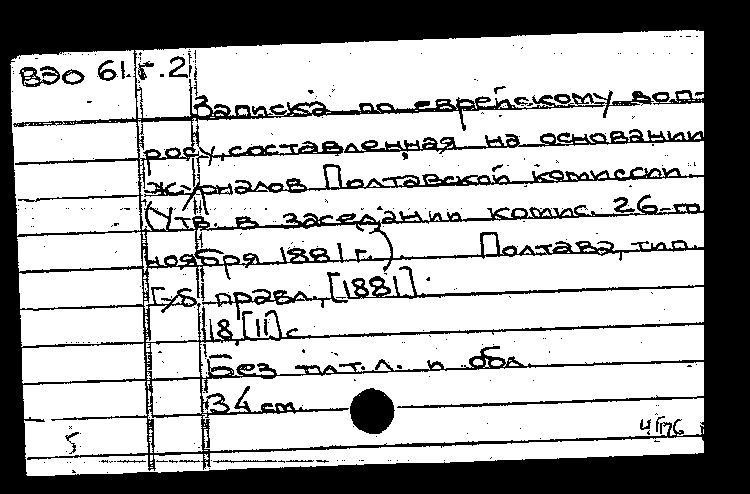 ВЭО 61.г.2
Записка по еврейскому воп-
росу, составленная на основании
журналов Полтавской комиссии.
(Утв. в заседании комис. 26-го
ноября 1881 г.). Полтава, тип.
Губ. правл., [1881].
18 [11] с.
Без тит.л. и обл.
34 см.
5